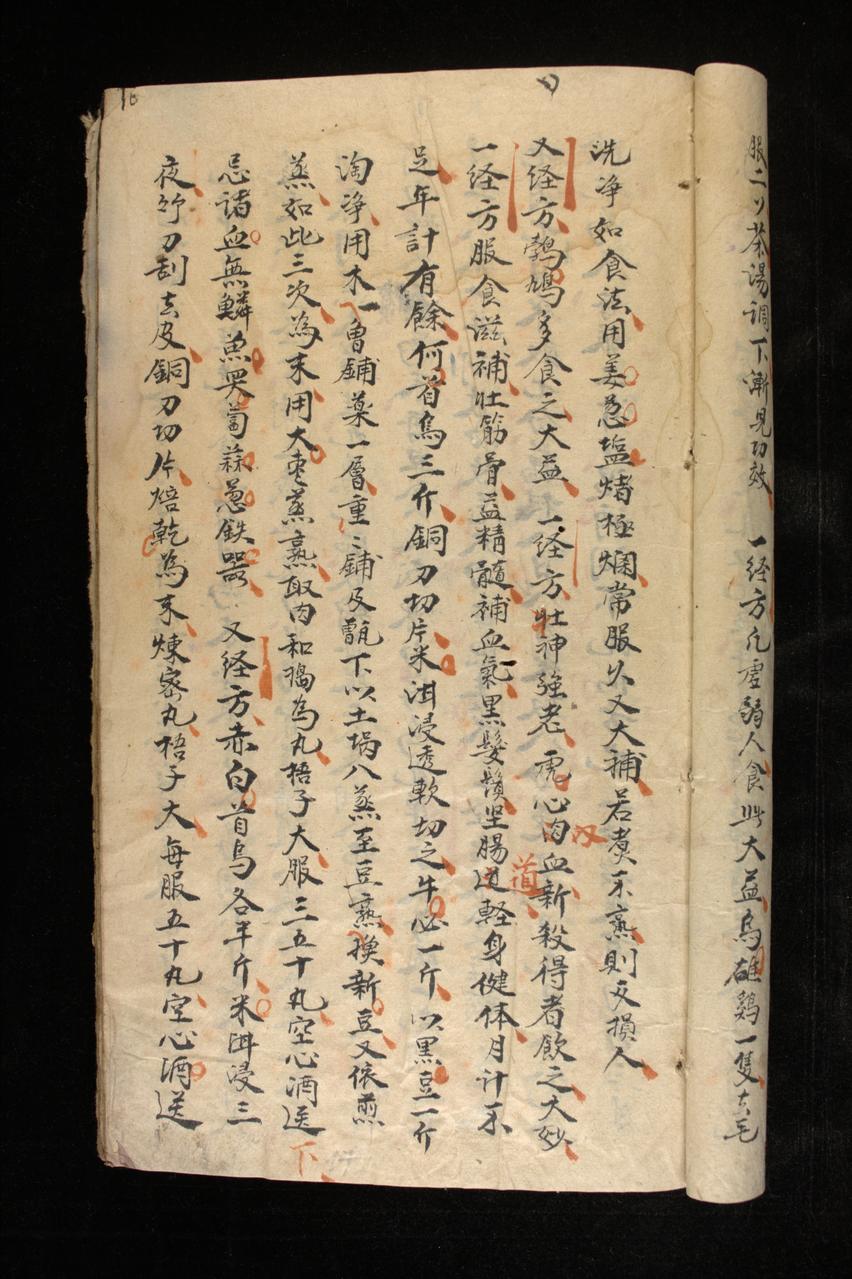 服二𠆤茶湯調下漸見功效 一経方凡虚弱人食此大益烏雄鷄一隻去毛
洗净如食法用姜葱塩㷛極爛常服久又大補若煑不熟則反損人
又経方鵓鳩多食之大益 一経方壮神強老虎心肉血新殺得者飲之大妙
一経方服食滋補壮筋骨益精髓補血氣黑髮鬚坚腸道軽身健体月計不
足年計有餘何首烏三斤銅刀切片米泔浸透軟切之牛心一斤以黑豆一斤
淘净用木一曾鋪薬一層重〻鋪及甑下以土堝八蒸至豆熟換新豆又依煎
蒸如此三次為末用大枣蒸熟取肉和搗為丸梧子大服三五十丸空心酒送下
忌諸血無鱗魚哭蔔蒜葱鉄器 又経方赤白首烏各半斤米泔浸三
夜竹刀刮去皮銅刀切片焙乾為末煉密丸梧子大每服五十丸空心酒送